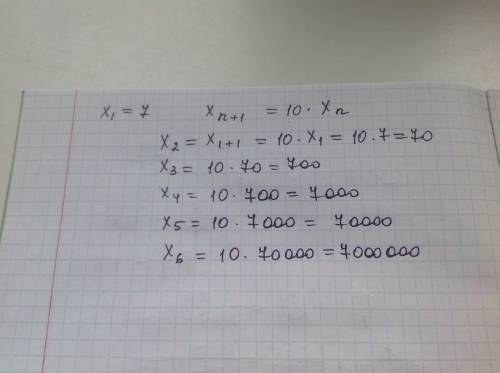 x₁ = 7 x ₙ₊₁ = 10 · xₙ
x₂ = x₁₊₁ = 10 · x₁ = 10 · 7 = 70
x₃ = 10 · 70 = 700
x₄ = 10 · 700 = 7000
x₅ = 10 · 7000 = 70000
x₆ = 10 · 70000 = 7000000